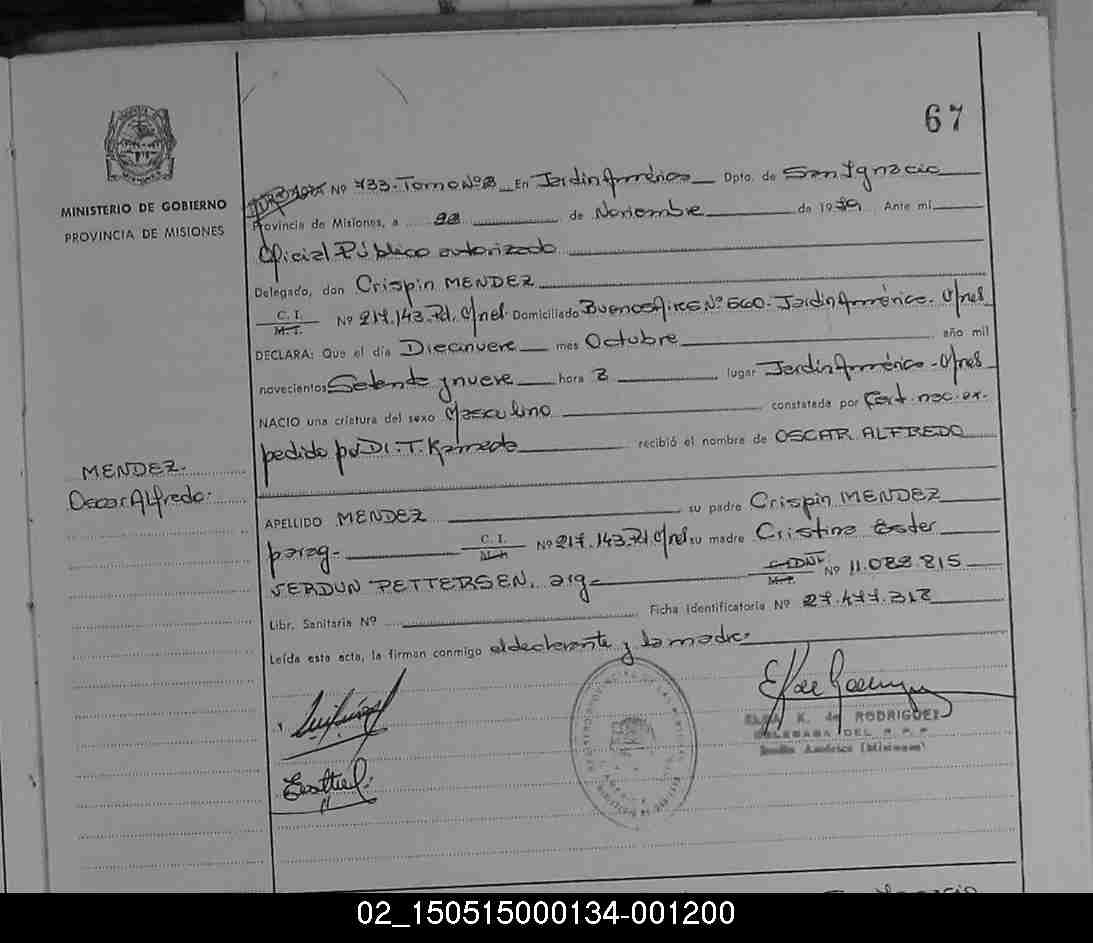 67
MINISTERIO DE GOBIERNO
PROVINCIA DE MISIONES
Nº 733. Tomo Nº En Jardin América Dpto. de San Ignacio
Provincia de Misiones, a 22 de Noviembre de 1979 Ante mi
Oficial Público autorizado
Delegado, don Crispin MENDEZ
C. I. M.I. Nº 217.143. Pol. C/nel. Domiciliado Buenos Aires Nº 560. Jardin América. M/nes
DECLARA: Que el día Diecinueve mes Octubre año mil
novecientos Setenta y nueve hora 2 lugar Jardin América - M/nes
NACIO una criatura del sexo Masculino constatada por Cert. nac. ex-
pedido por Dr. T. Kameda recibió el nombre de OSCAR ALFREDO
MENDEZ.
Oscar Alfredo.
APELLIDO MENDEZ su padre Crispin MENDEZ
parag- C. I. Nº 217.143. su madre Cristina Ester
VERDUN PETTERSEN, arg- Nº 11.082.815
Libr. Sanitaria Nº Ficha Identificatoria Nº 27.477.312
Leída esta acta, la firman conmigo el declarante y la madre.
K. de RODRIGUEZ
DELEGADA DEL R. P. P.
Jardín América (Misiones)
02_150515000134-001200